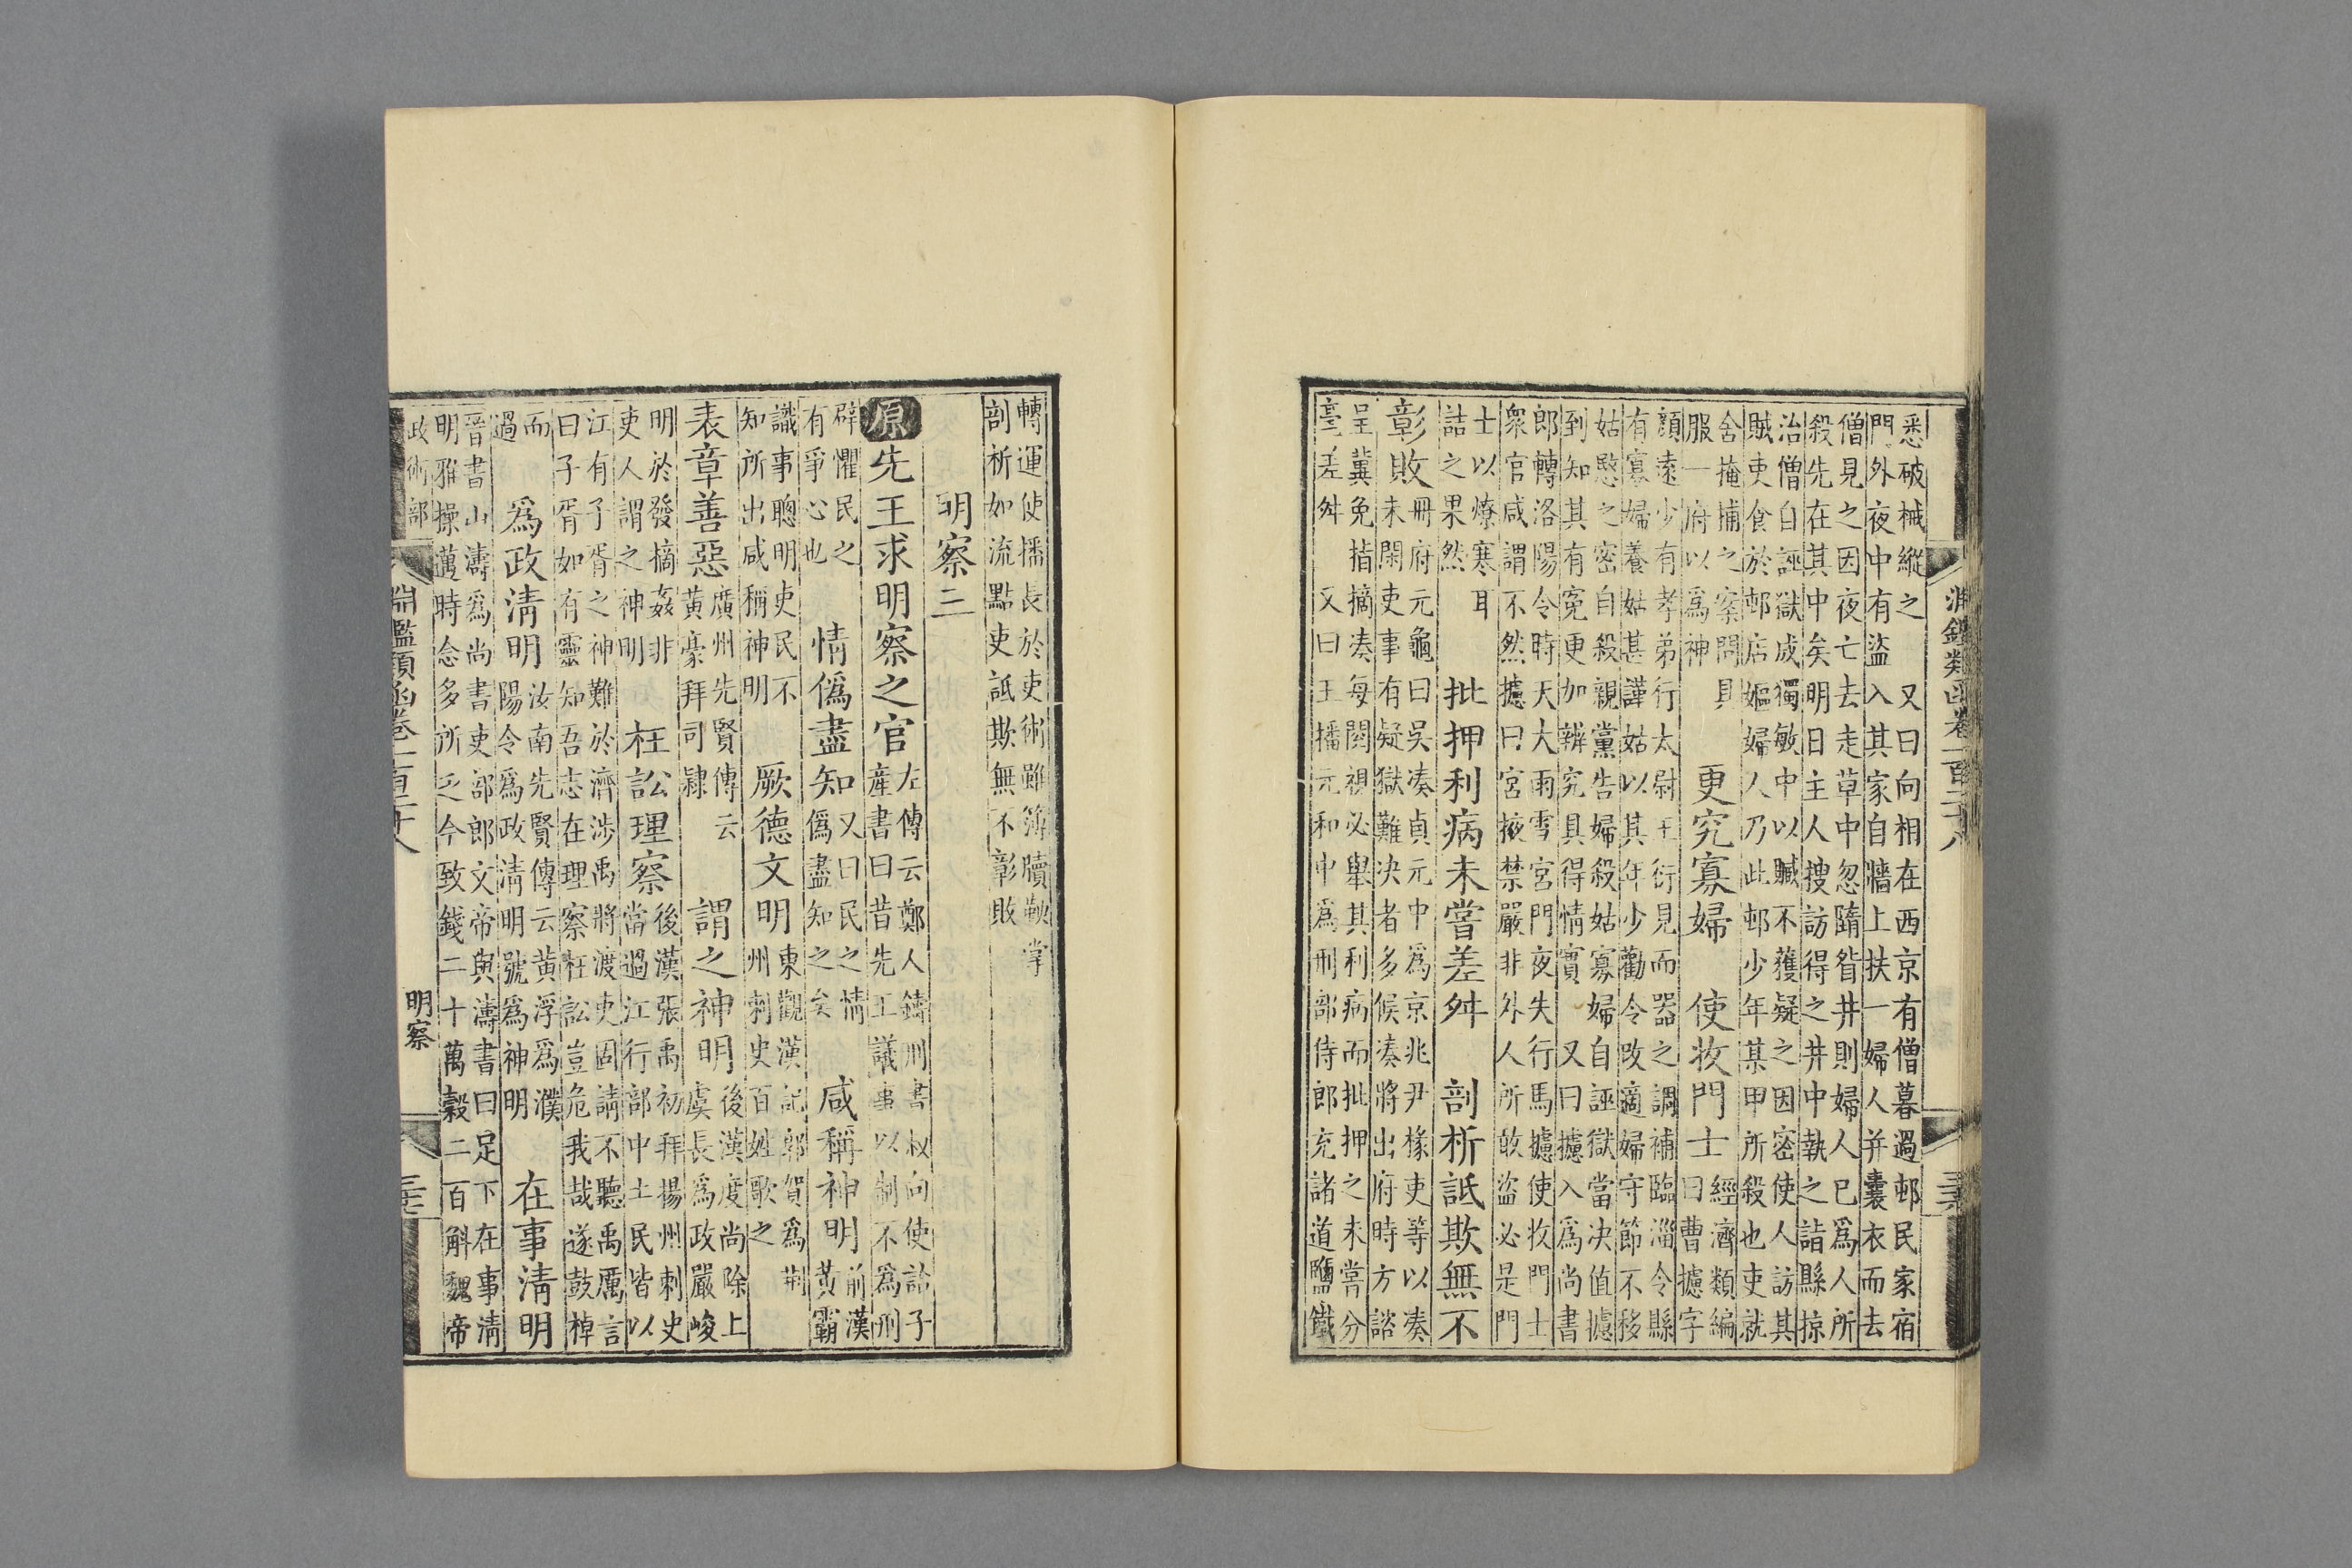 淵鑑類函卷一百二十八
悉破械縱之　又曰向相在西京有僧暮過邨民家宿
門外夜中有盜入其家自牆上扶一婦人并囊衣而去
僧見之因夜亡去走草中忽隨眢井則婦人已爲人所
殺先在其中矣明日主人搜訪得之井中執之詣縣掠
治僧自誣獄成獨敏中以贓不獲疑之因密使人訪其
賊吏食於邨店嫗婦人乃此邨少年某甲所殺也吏就
舍掩捕之案問具　更究寡婦　使牧門士經濟類編
服一府以爲神　　　　　　　　　　　　曰曹攄字
顏遠少有孝弟行太尉王衍見而器之調補臨淄令縣
有寡婦養姑甚謹姑以其年少勸令改適婦守節不移
姑愍之密自殺親黨告婦殺姑寡婦自誣獄當决值攄
到知其有寃更加辨究具得情實　又曰攄入爲尚書
郎轉洛陽令時天大雨雪宮門夜失行馬攄使牧門士
衆官咸謂不然攄曰宮掖禁嚴非外人所敢盜必是門
士以燎寒耳　批押利病未嘗差舛　剖析詆欺無不
詰之果然
彰敗冊府元龜曰吳凑貞元中爲京兆尹椽吏等以凑
未閑吏事有疑獄難决者多候凑將出府時方諮
呈冀免指摘凑每閱視必舉其利病而批押之未嘗分
毫差舛　又曰王播元和中爲刑部侍郎充諸道鹽鐵
轉運使播長於吏術雖簿牘鞅掌
剖析如流黠吏詆欺無不彰敗
明察三
原先王求明察之官左傳云鄭人鑄刑書叔向使詒子
產書曰昔先王議事以制不爲刑
辟懼民之　情僞盡知又曰民之情　咸稱神明前漢
有爭心也　　　　　僞盡知之矣　　　　　黃霸
識事聰明吏民不　厥德文明東觀漢記郭賀爲荆
知所出咸稱神明　　　　　州刺史百姓歌之
表章善惡廣州先賢傳云　謂之神明後漢度尚除上
黃豪拜司隸　　　　　虞長爲政嚴峻
明於發摘姦非　枉訟理察後漢張禹初拜揚州刺史
吏人謂之神明　　　　　當過江行部中土民皆以
江有子胥之神難於濟渉禹將渡吏固請不聽禹厲言
曰子胥如有靈知吾志在理察枉訟豈危我哉遂鼓棹
而　爲政清明汝南先賢傳云黃浮爲濮　在事清明
過　　　　　陽令爲政清明號爲神明
晉書山濤爲尚書吏部郎文帝與濤書曰足下在事清
明雅操邁時念多所乏今致錢二十萬穀二百斛魏帝
政術部
明察